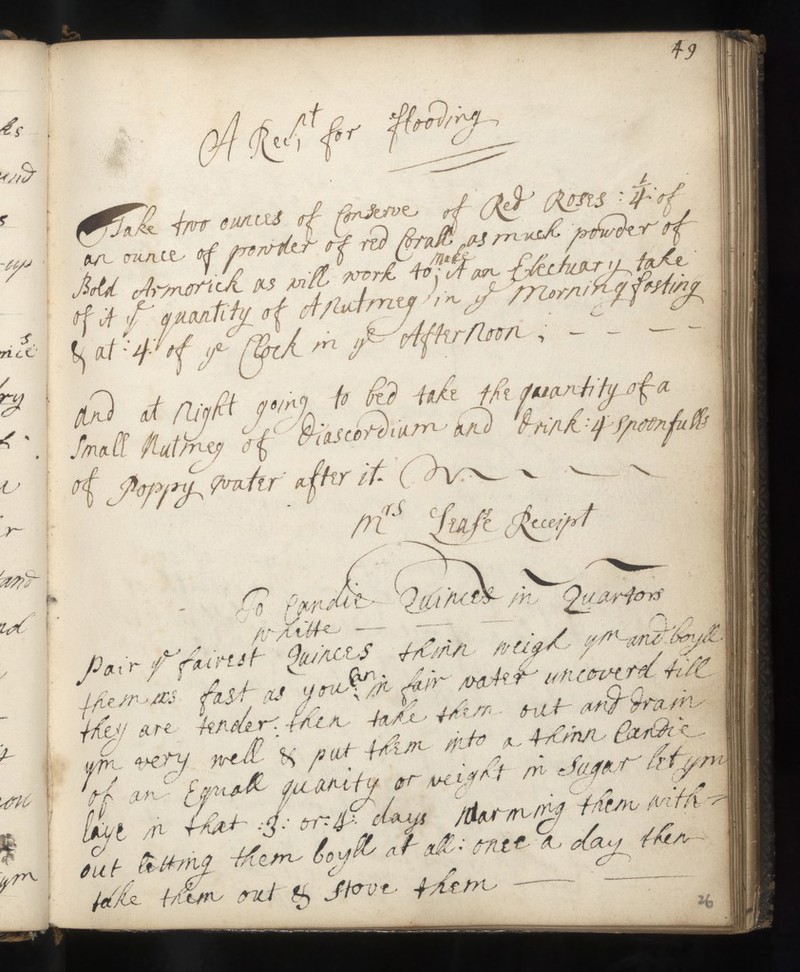 49
A Rec:pt for flooding
Take two ounces of Conserve of Red Roses : ¼ of
an ounce of powder of red Corall as much powder of
Bold Armorick as will work to make it an Electuary take
of it ye quantity of A Nutmeg in ye Morning fasting
& at : 4 : of ye Clock in ye After Noon ; - - - -
And at Night going to bed take the quantity of a
Small Nutmeg of Diascordium and drink : 4 spoonfulls
of Poppy water after it.
Mrs Receipt
To Candie Quinces in Quartors
whitte
Pair ye fairest Quinces thinn weigh ym and boyll
them as fast as you can in fair water uncoverd till
they are tender : then take them out and drain
ym very well & put them into a thinn Candie
of an Equall quanity or weight in Sugar let ym
laye in that :3: or :4: days warming them with=
out letting them boyll at all : once a day then
take them out & stove them
26
ks
and
s
-up
ry
r
and
ym